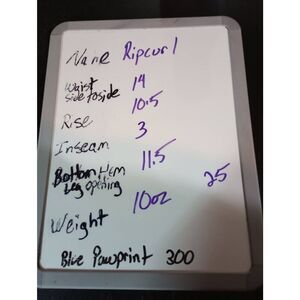 Name Ripcurl
Waist 14
side to side 10.5
Rise
Inseam 3
Bottom Hem 11.5
Leg opening 25
Weight 10oz
Blue Pawprint 300